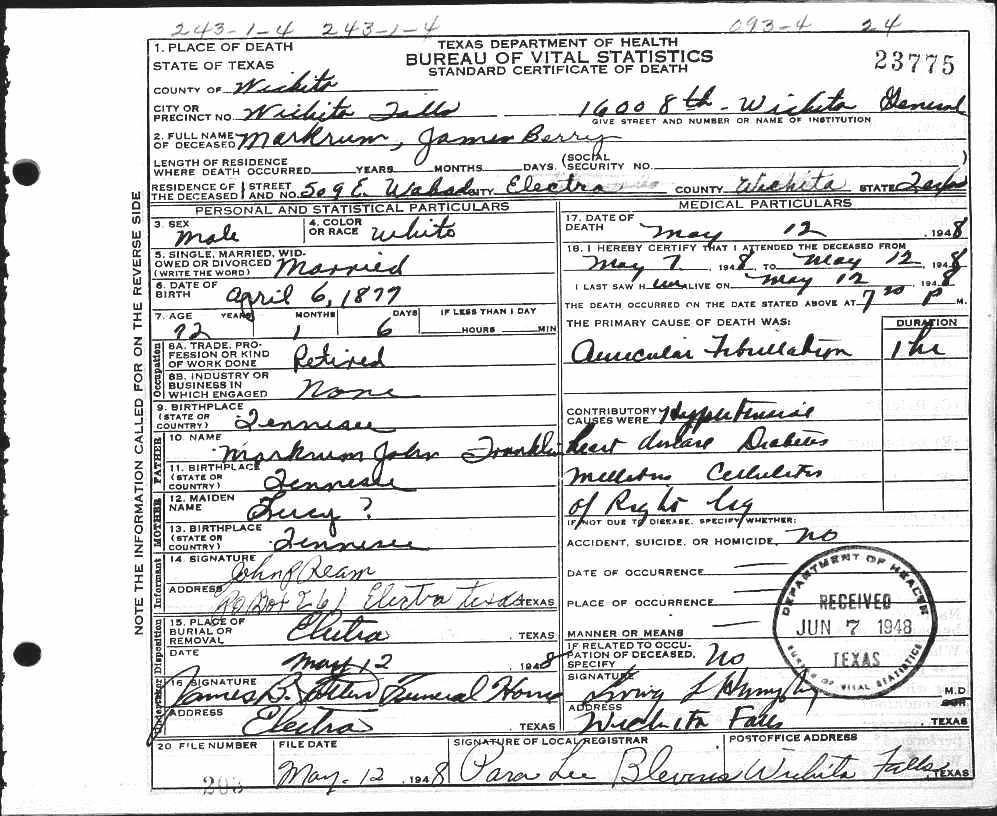 243-1-4 243-1-4 093-4 24
TEXAS DEPARTMENT OF HEALTH
BUREAU OF VITAL STATISTICS
STANDARD CERTIFICATE OF DEATH
23775
1. PLACE OF DEATH
STATE OF TEXAS
COUNTY OF Wichita
CITY OR PRECINCT NO. Wichita Falls 1600 8th - Wichita General
GIVE STREET AND NUMBER OR NAME OF INSTITUTION
2. FULL NAME OF DECEASED Markrum, James Berry
LENGTH OF RESIDENCE WHERE DEATH OCCURRED YEARS MONTHS DAYS. (SOCIAL SECURITY NO. )
RESIDENCE OF THE DECEASED STREET AND NO. 509 E. CITY Electra COUNTY Wichita STATE Texas
PERSONAL AND STATISTICAL PARTICULARS
3. SEX Male
4. COLOR OR RACE White
5. SINGLE, MARRIED, WIDOWED OR DIVORCED (WRITE THE WORD) Married
6. DATE OF BIRTH April 6, 1877
7. AGE YEARS MONTHS DAYS IF LESS THAN 1 DAY
72 1 6 HOURS MIN
Occupation
8A. TRADE, PROFESSION OR KIND OF WORK DONE Retired
8B. INDUSTRY OR BUSINESS IN WHICH ENGAGED None
9. BIRTHPLACE (STATE OR COUNTRY) Tennisee
FATHER
10. NAME Markrum John Franklin
11. BIRTHPLACE (STATE OR COUNTRY) Tennisee
MOTHER
12. MAIDEN NAME ?
13. BIRTHPLACE (STATE OR COUNTRY) Tennisee
Informant
14. SIGNATURE John P Ream
ADDRESS PO Box 261 Electra Texas TEXAS
Disposition
15. PLACE OF BURIAL OR REMOVAL Electra , TEXAS
DATE May 12 , 1948
Undertaker
16 SIGNATURE James B. Totten Funeral Home
ADDRESS Electra , TEXAS
MEDICAL PARTICULARS
17. DATE OF DEATH May 12 , 1948
18. I HEREBY CERTIFY THAT I ATTENDED THE DECEASED FROM
May 7 , 1948, TO May 12 , 1948
I LAST SAW H im ALIVE ON May 12 , 1948
THE DEATH OCCURRED ON THE DATE STATED ABOVE AT 7 P M.
THE PRIMARY CAUSE OF DEATH WAS: DURATION
Auricular Fibrillation 1 hr
CONTRIBUTORY CAUSES WERE Hypertensive
heart disease Diabetes
Mellitus Cellulitis
of Right Leg
IF NOT DUE TO DISEASE, SPECIFY WHETHER:
ACCIDENT, SUICIDE, OR HOMICIDE, no
DATE OF OCCURRENCE
PLACE OF OCCURRENCE
MANNER OR MEANS
IF RELATED TO OCCUPATION OF DECEASED, SPECIFY No
SIGNATURE Irving L Humphrey M.D
ADDRESS Wichita Falls , TEXAS
DEPARTMENT OF HEALTH
RECEIVED
JUN 7 1948
TEXAS
BUREAU OF VITAL STATISTICS
20. FILE NUMBER FILE DATE SIGNATURE OF LOCAL REGISTRAR POSTOFFICE ADDRESS
203 May. 12 , 1948 Para Lee Blevins Wichita Falls, TEXAS
NOTE THE INFORMATION CALLED FOR ON THE REVERSE SIDE